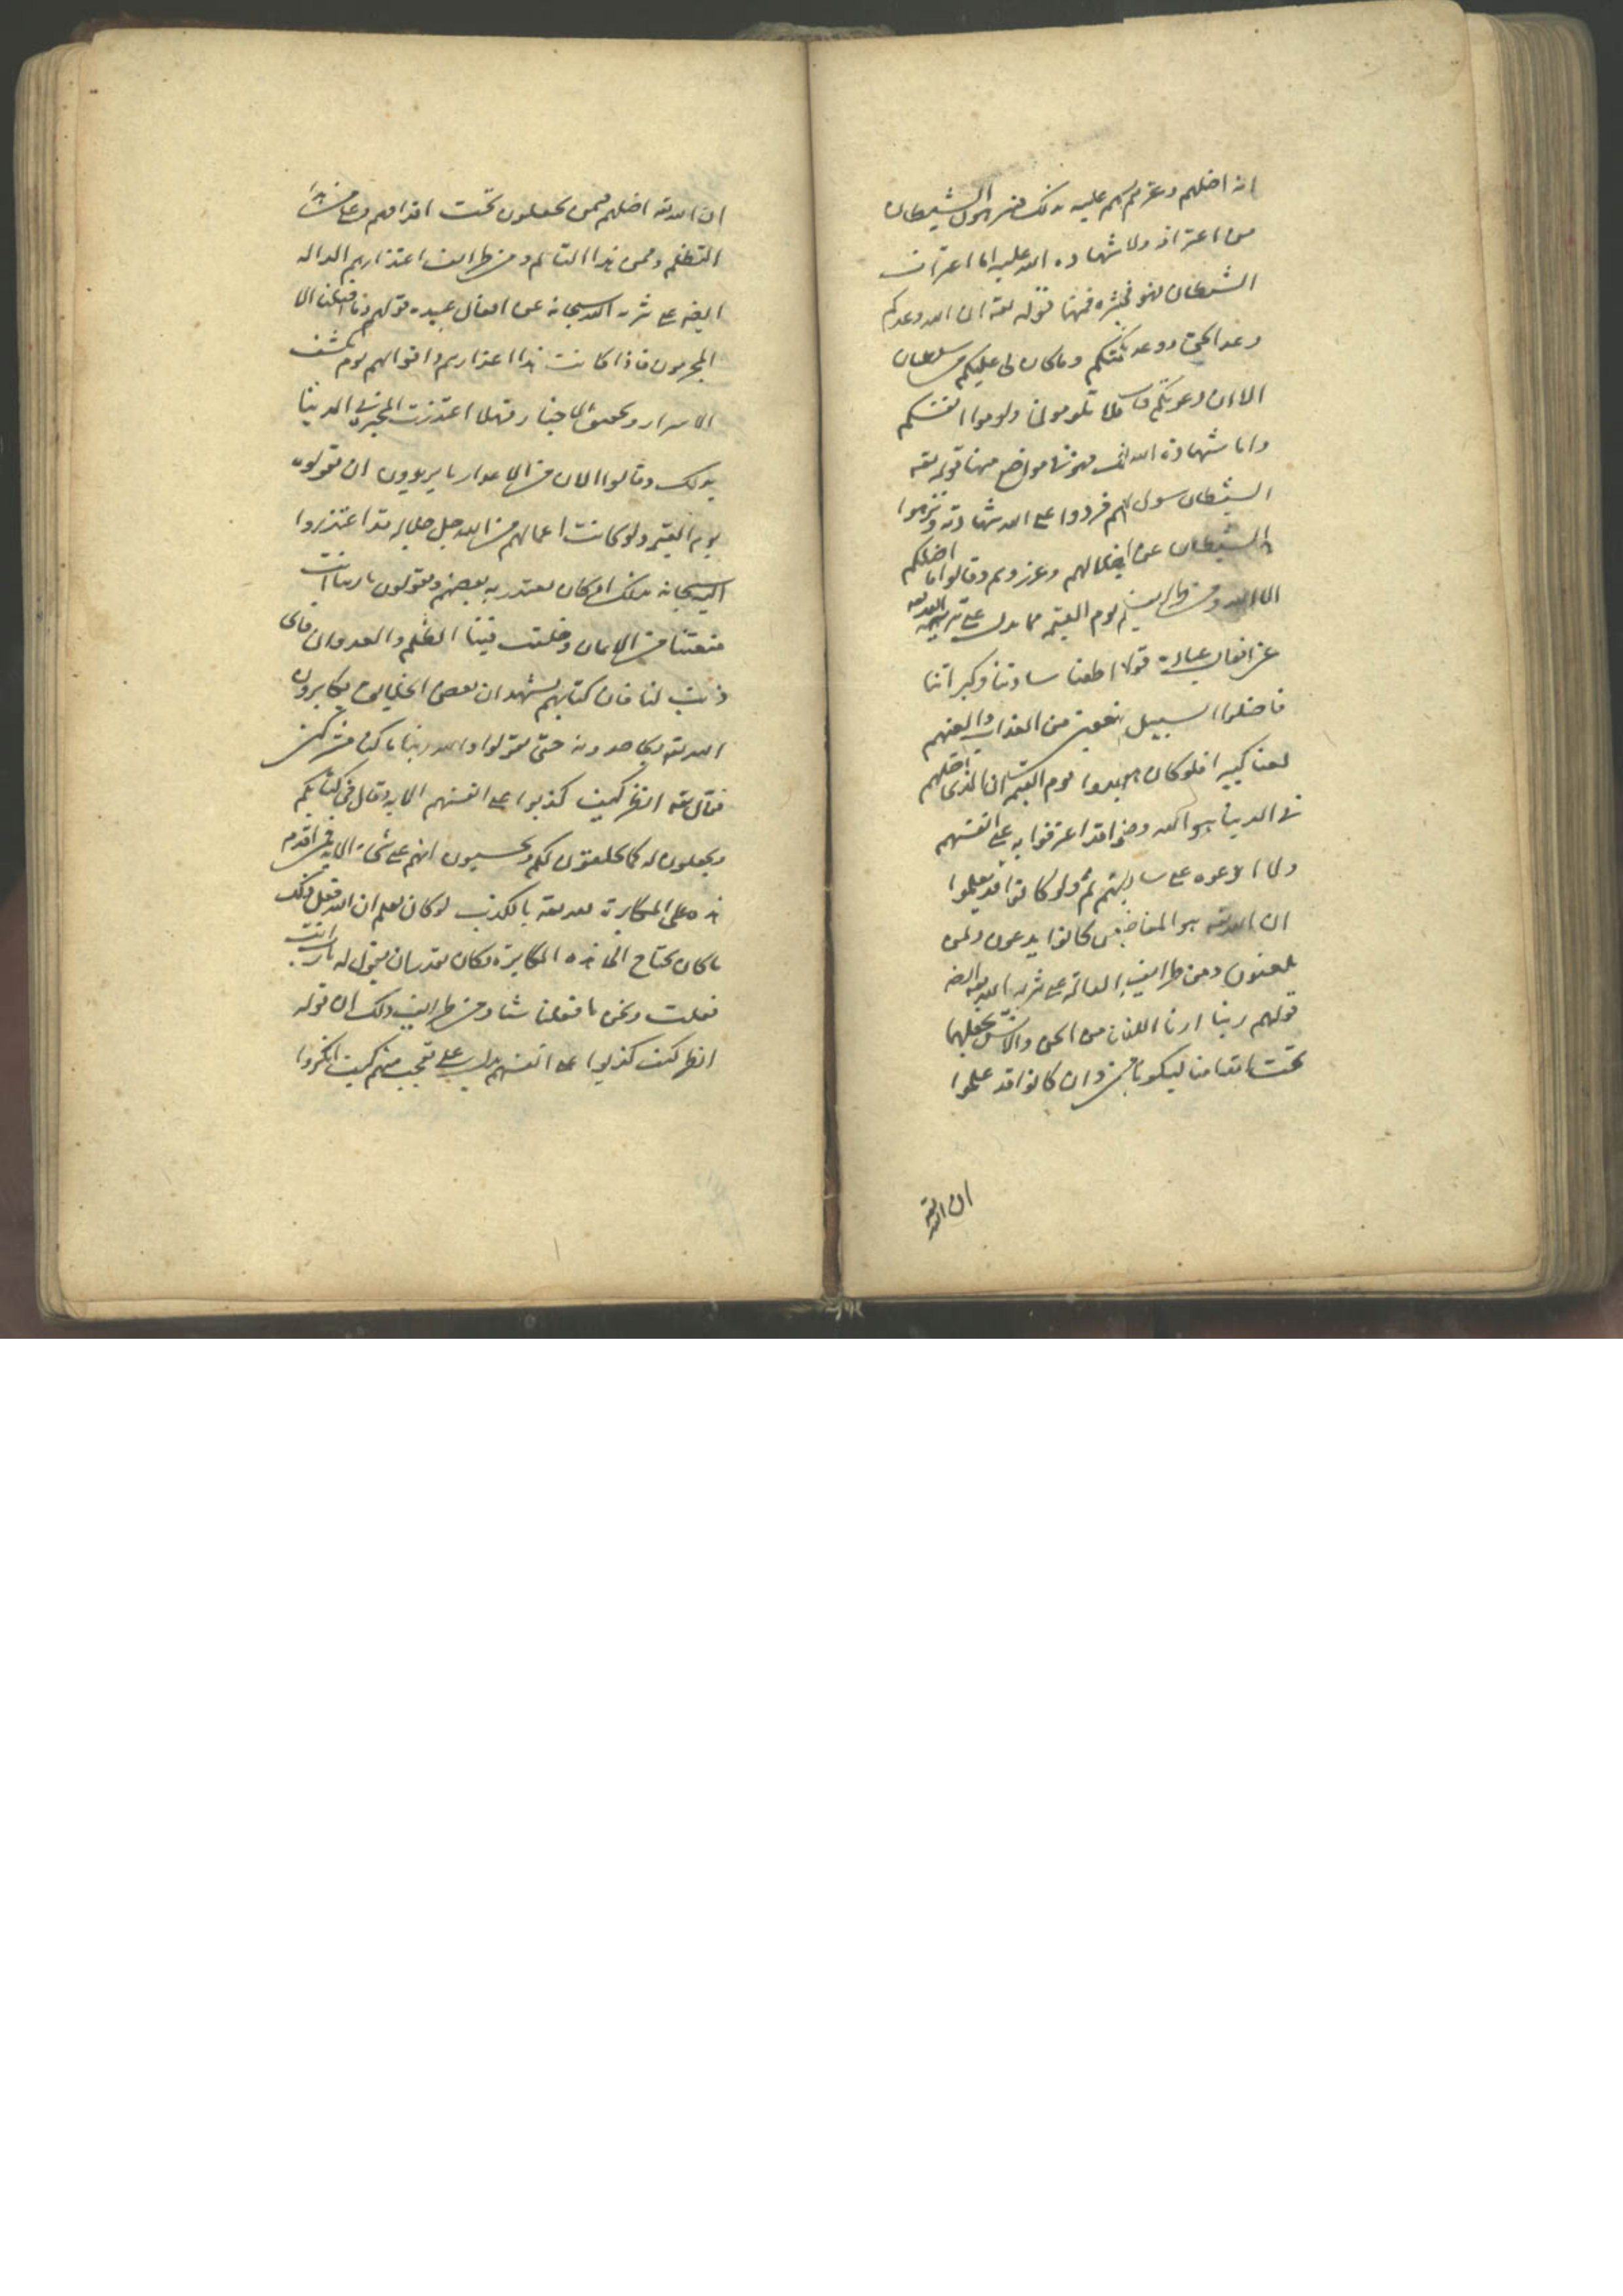 انه اضلهم وغرهم علیه ذلك الشیطان
من اعترافه ولا شهادة الله علیه اما اعتراف
الشیطان فهو فمنها قوله تعه ان الله وعدكم
وعد الحق ووعدتكم وما كان لی علیكم من سلطان
الا ان دعوتكم فلا تلومونی ولوموا انفسكم
واما شهادة الله فهو فی مواضع منها قوله تعه
الشیطان سول لهم فردوا علی الله شهادته ونزهوا
الشیطان عن اضلالهم وغرورهم وقالوا ما اضلكم
الا الله ومن یوم القیمة مما یدل علی تنزیه الله تعه
عن افعال عباده قولهم اطعنا سادتنا وكبراءنا
فاضلونا السبیل ضعفین من العذاب والعنهم
لعنا كبیرا فلو كان یوم القیمة ان الذی اضلهم
فی الدنیا هو الله وقد اعترفوا به علی انفسهم
ولما ادعوه علی ساداتهم ولو كانوا قد علموا
ان الله تعه هو كانوا یدعون ولمن
یلعنون ومن طرایف الدالة علی تنزیه الله تعه ایضا
قولهم ربنا ارنا اللذین من الجن والانس نجعلهما
تحت اقدامنا لیكونا من وان كانوا قد علموا
ان الله تعه
ان الله تعه اضلهم فمن یجعلون تحت اقدامهم وعلی من هذا
التظلم وممن هذا التألم ومن طرایف اعتذارهم الدالة
ایضا علی تنزیه الله سبحانه عن افعال عبیده قولهم وما اضلنا الا
المجرمون فاذا كانت هذا اعتذارهم واقوالهم یوم كشف
الاسرار وتحقیق الاخبار فهلا اعتذرت المجبرة فی الدنیا
بذلك وقالوا الان من الاعذار ما یریدون ان یقولوه
یوم القیمة ولو كانت اعمالهم من الله جل جلاله لقد اعتذروا
الیه سبحانه بذلك او كان یعتذر به بعضهم ویقولون یا ربنا انت
منعتنا من الایمان وخلقت فینا الظلم والعدوان فای
ذنب لنا فان كتابهم یشهد ان بعض الخلایق یكابرون
الله تعه ویجاحدونه حتی یقولوا والله ربنا ما كنا مشركین
فقال تعه انظر كیف كذبوا علی انفسهم الایة وقال فی كتابكم
ویحلفون له كما یحلفون لكم ویحسبون انهم علی شئ الایة فمن اقدم
هذه علی المكابرة لله تعه بالكذب لو كان یعلم ان الله فعل ذلك
ما كان یحتاج الی هذه المكابرة وكان یقدر ان یقول له یا رب انت
فعلت ونحن ما فعلنا شیئا ومن طرایف ذلك ان قوله
انظر كیف كذبوا علی انفسهم یدل علی تعجب منهم كیف انكروا